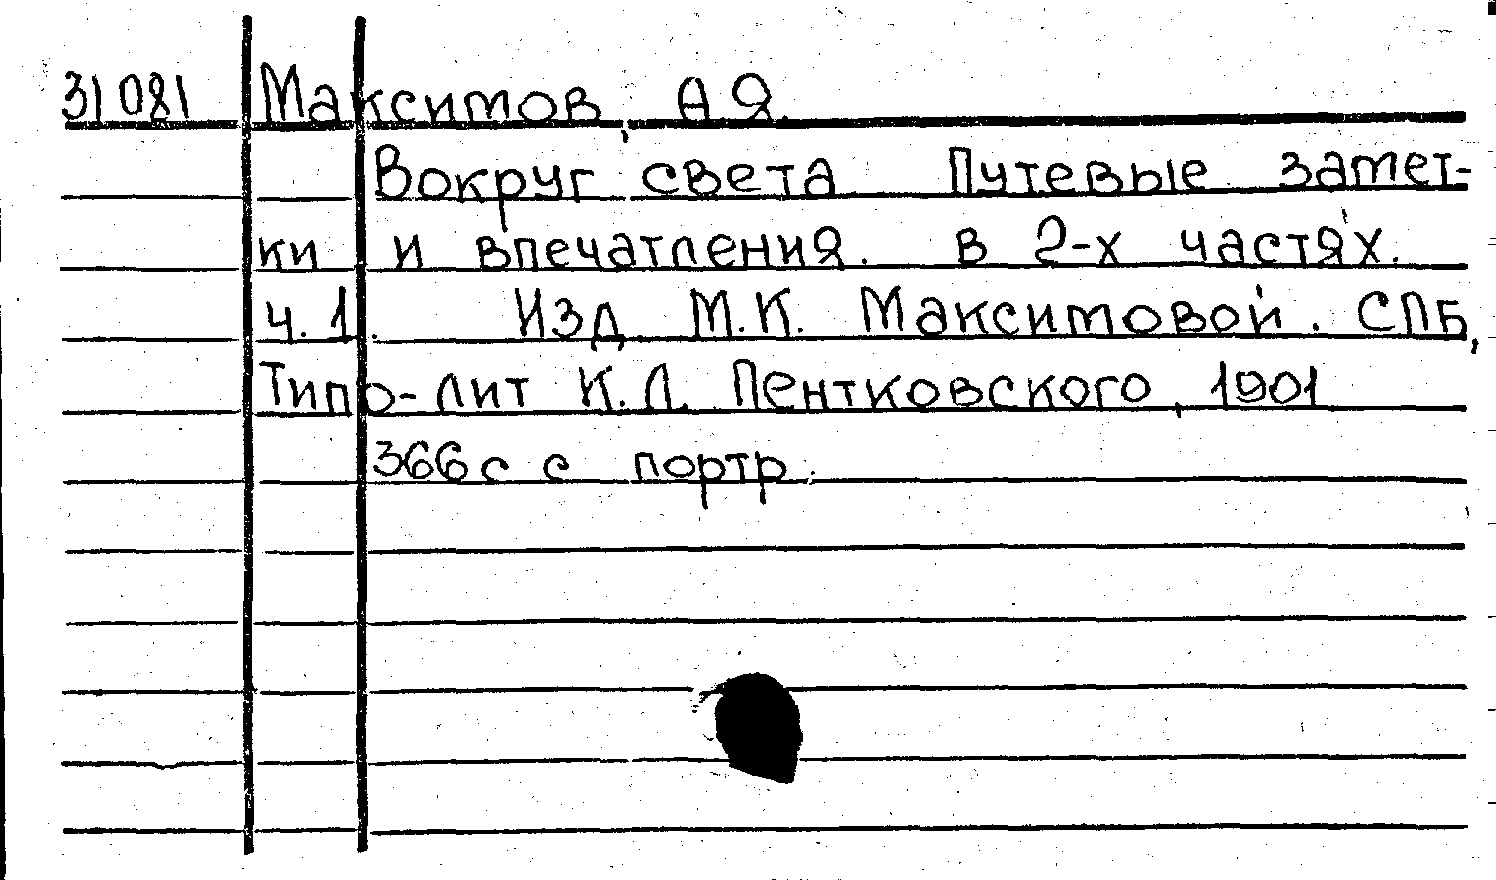 31081 Максимов, А Я.
Вокруг света Путевые замет-
ки и впечатления. в 2-х частях.
ч. 1. Изд М.К. Максимовой. СПБ,
Типо-лит К.Л. Пентковского, 1901
366 с с портр.